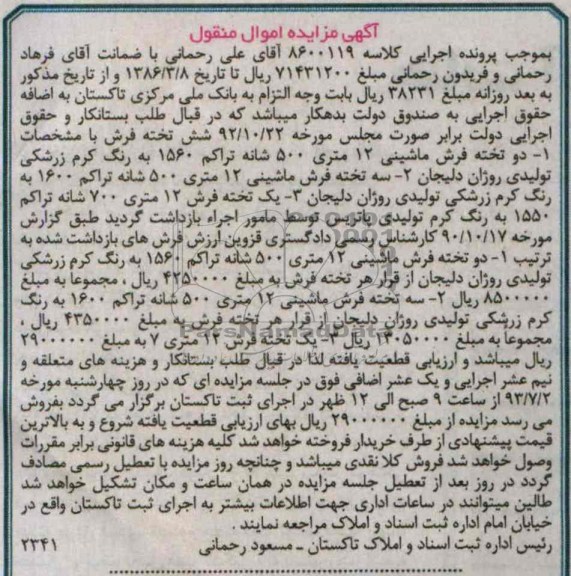 آگهی مزایده اموال منقول
بموجب پرونده اجرایی کلاسه ۸۶۰۰۱۱۹ آقای علی رحمانی با ضمانت آقای فرهاد
رحمانی و فریدون رحمانی مبلغ ۷۱۴۳۱۲۰۰ ریال تا تاریخ ۱۳۸۶/۳/۸ و از تاریخ مذکور
به بعد روزانه مبلغ ۳۸۲۳۱ ریال بابت وجه التزام به بانک ملی مرکزی تاکستان به اضافه
حقوق اجرایی به صندوق دولت بدهکار میباشد که در قبال طلب بستانکار و حقوق
اجرایی دولت برابر صورت مجلس مورخه ۹۲/۱۰/۲۲ شش تخته فرش با مشخصات
۱- دو تخته فرش ماشینی ۱۲ متری ۵۰۰ شانه تراکم ۱۵۶۰ به رنگ کرم زرشکی
تولیدی روژان دلیجان ۲- سه تخته فرش ماشینی ۱۲ متری ۵۰۰ شانه تراکم ۱۶۰۰ به
رنگ کرم زرشکی تولیدی روژان دلیجان ۳- یک تخته فرش ۱۲ متری ۷۰۰ شانه تراکم
۱۵۵۰ به رنگ کرم تولیدی پاتریس توسط مامور اجراء بازداشت گردید طبق گزارش
مورخه ۹۰/۱۰/۱۷ کارشناس رسمی دادگستری قزوین ارزش فرش های بازداشت شده به
ترتیب ۱- دو تخته فرش ماشینی ۱۲ متری ۵۰۰ شانه تراکم ۱۵۶۰ به رنگ کرم زرشکی
تولیدی روژان دلیجان از قرار هر تخته فرش به مبلغ ۴۲۵۰۰۰۰ ریال ، مجموعا به مبلغ
۸۵۰۰۰۰۰ ریال ۲- سه تخته فرش ماشینی ۱۲ متری ۵۰۰ شانه تراکم ۱۶۰۰ به رنگ
کرم زرشکی تولیدی روژان دلیجان از قرار هر تخته فرش به مبلغ ۴۳۵۰۰۰۰ ریال ،
مجموعا به مبلغ ۱۳۰۵۰۰۰۰ ریال ۳- یک تخته فرش ۱۲ متری ۷ به مبلغ ۲۹۰۰۰۰۰۰
ریال میباشد و ارزیابی قطعیت یافته لذا در قبال طلب بستانکار و هزینه های متعلقه و
نیم عشر اجرایی و یک عشر اضافی فوق در جلسه مزایده ای که در روز چهارشنبه مورخه
۹۳/۷/۲ از ساعت ۹ صبح الی ۱۲ ظهر در اجرای ثبت تاکستان برگزار می گردد بفروش
می رسد مزایده از مبلغ ۲۹۰۰۰۰۰۰ ریال بهای ارزیابی قطعیت یافته شروع و به بالاترین
قیمت پیشنهادی از طرف خریدار فروخته خواهد شد کلیه هزینه های قانونی برابر مقررات
وصول خواهد شد فروش کلا نقدی میباشد و چنانچه روز مزایده با تعطیل رسمی مصادف
گردد در روز بعد از تعطیل جلسه مزایده در همان ساعت و مکان تشکیل خواهد شد
طالبین میتوانند در ساعات اداری جهت اطلاعات بیشتر به اجرای ثبت تاکستان واقع در
خیابان امام اداره ثبت اسناد و املاک مراجعه نمایند .
رئیس اداره ثبت اسناد و املاک تاکستان ـ مسعود رحمانی ۲۳۴۱